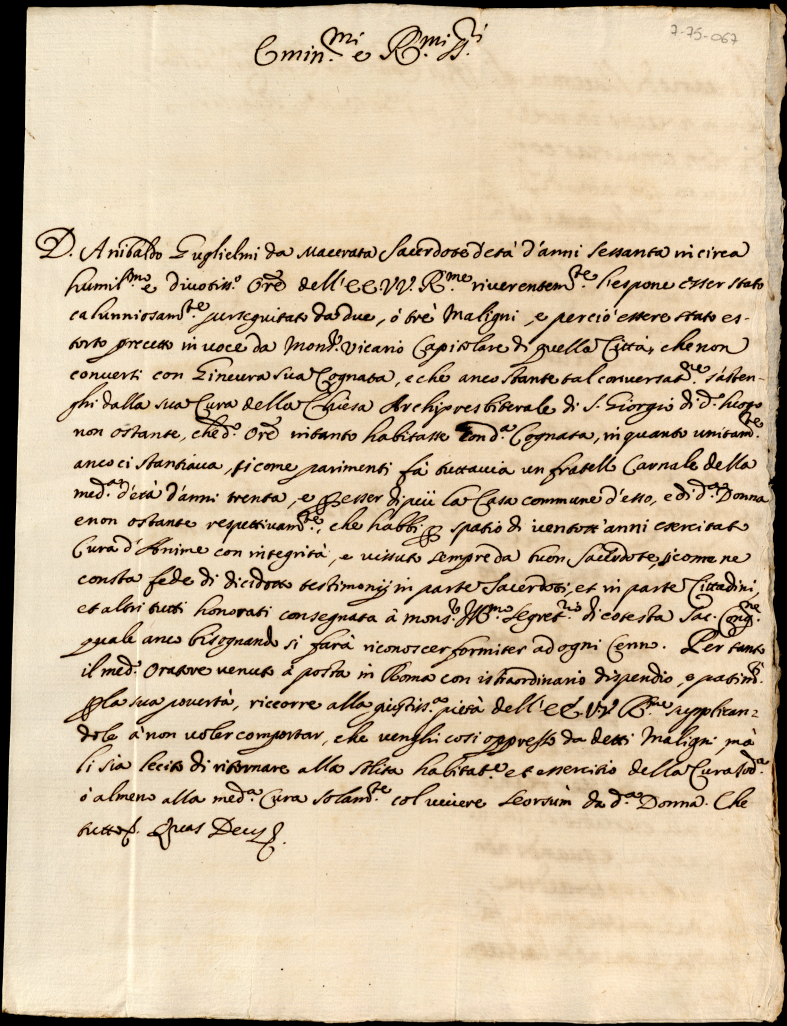 7-75-067
Emin.mi e R.mi SS.ri
D. Anibaldo Guglielmi da Macerata Sacerdote d'età d'anni sessanta in circa
humil.mo e divotiss.o Ore dell'EE.VV. R.me riverentem.te l'espone esser stato
calunniosam.te perseguitato da due, ò trè Maligni, e perciò essere stato es-
torto precetto in voce da Mons.r Vicario Capitolare di quella Città, che non
converti con Ginevra sua Cognata, e che anco stante tal conversat.ne s'asten-
ghi dalla sua Cura della Chiesa Archipresbiterale di S. Giorgio di d.o luogo
non ostante, che d.o Ore intanto habitasse con d.a Cognata, in quanto unitam.te
anco ci stantiava, sicome parimenti fà tuttavia un fratello Carnale della
med.a d'età d'anni trenta, e p esser di più la Casa commune d'esso, e di d.a Donna
e non ostante respettivam.te, che habbi p spatio di ventott'anni esercitato
Cura d'Anime con integrità, e vissuto sempre da buon Sacerdote, sicome ne
consta fede di dicidotto testimonij in parte Sacerdoti, et in parte Cittadini,
et altri tutti honorati consegnata à mons.r Ill.mo Segret.rio di cotesta Sac. Cong.ne
quale anco bisognando si farà riconoscer formiter ad ogni Cenno. Per tanto
il med.o Oratore venuto à posta in Roma con istraordinario dispendio, e patim.ti
p la sua povertà, riccorre alla giustiss.a pietà dell'EE.VV. R.me supplican=
dole à non voler comportar, che venghi così oppresso da detti Maligni, mà
li sia lecito di ritornare alla solita habitat.e et essercitio della Cura sod.a
ò almeno alla med.a Cura solam.te col vivere seorsim da d.a Donna. Che
tutto &. Quas Deus &.